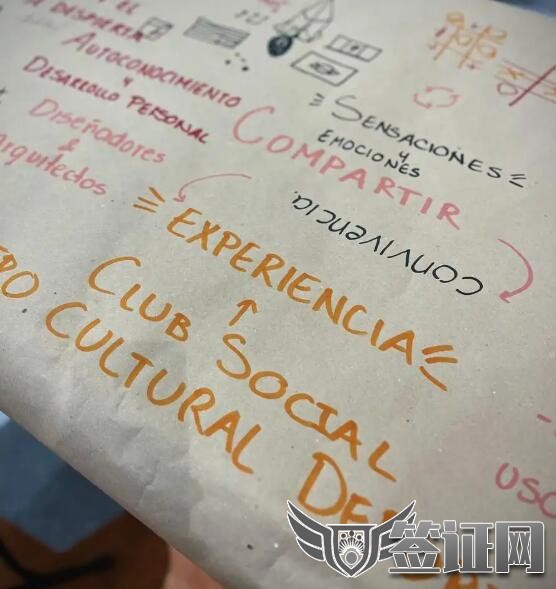 Y EL
DESPIERTA
AUTOCONOCIMIENTO
Y
DESARROLLO PERSONAL
DISEÑADORES
&
arquitectos
SENSACIONES
Y
EMOCIONES
COMPARTIR
CONVIVENCIA.
EXPERIENCIA
CLUB SOCIAL
CULTURAL
USO
签证网